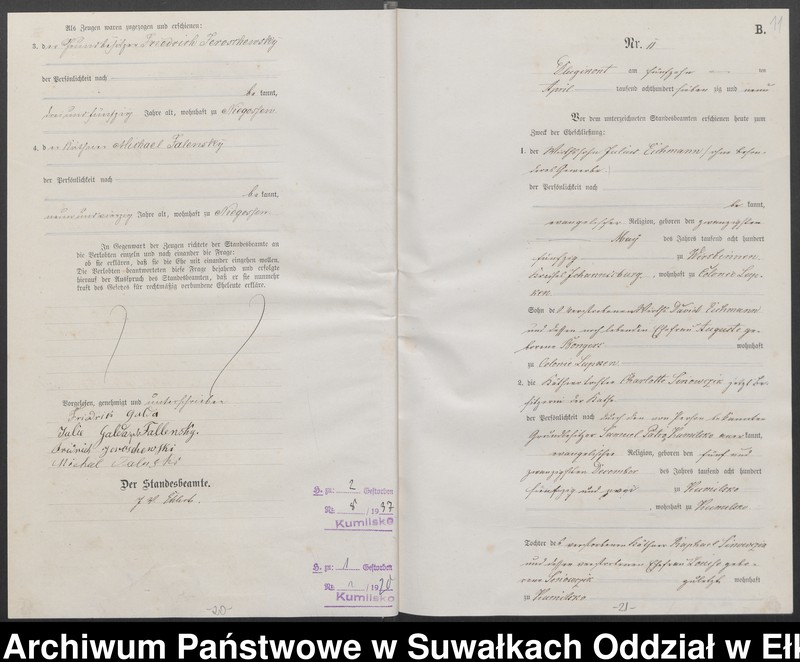 Als Zeugen waren zugezogen und erschienen:
3. der Grundbesitzer Friedrich Jeroschewsky
der Persönlichkeit nach
be kannt,
Jahre alt, wohnhaft zu
4. der Michael Falensky
der Persönlichkeit nach
be kannt,
neunundvierzig Jahre alt, wohnhaft zu
In Gegenwart der Zeugen richtete der Standesbeamte an
die Verlobten einzeln und nach einander die Frage:
ob sie erklären, daß sie die Ehe mit einander eingehen wollen.
Die Verlobten beantworteten diese Frage bejahend und erfolgte
hierauf der Ausspruch des Standesbeamten, daß er sie nunmehr
kraft des Gesetzes für rechtmäßig verbundene Eheleute erkläre.
Vorgelesen, genehmigt und unterschrieben
Galda
Julie Galda Fallensky.
Jeroschewski
Der Standesbeamte.
H. zu: 2 Gestorben
Nr. 8 /1937
Kumilsko
H. zu: 1 Gestorben
Nr. /1920
Kumilsko
-20-
11
B.
Nr. 11
am fünfzehn ten
April tausend achthundert sieben zig und neun
Vor dem unterzeichneten Standesbeamten erschienen heute zum
Zweck der Eheschließung:
1. der Wirthssohn Julius Eichmann, ohne beson-
deres Gewerbe
der Persönlichkeit nach
be kannt,
evangelischer Religion, geboren den zwanzigsten
May des Jahres tausend acht hundert
fünfzig zu
Kreises Johannisburg, wohnhaft zu Colonie Lup-
ken
Sohn des verstorbenen Wirths David Eichmann
und dessen noch lebenden Ehefrau Auguste ge-
borene wohnhaft
zu Colonie Lupken
2. die Käthnertochter Charlotte Sinowzik jetzt Be-
sitzerin der Kathe
der Persönlichkeit nach durch den von Person bekannten
Grundbesitzer Samuel Kumilsko kannt,
evangelischer Religion, geboren den fünf und
zwanzigsten December des Jahres tausend acht hundert
fünfzig und zwei zu Kumilsko
, wohnhaft zu Kumilsko
Tochter des verstorbenen Käthner Raphael Sinowzik
und dessen verstorbenen Ehefrau Louise gebo-
rene Sinowzik zuletzt wohnhaft
zu Kumilsko
-21-
Archiwum Państwowe w Suwałkach Oddział w Ełk